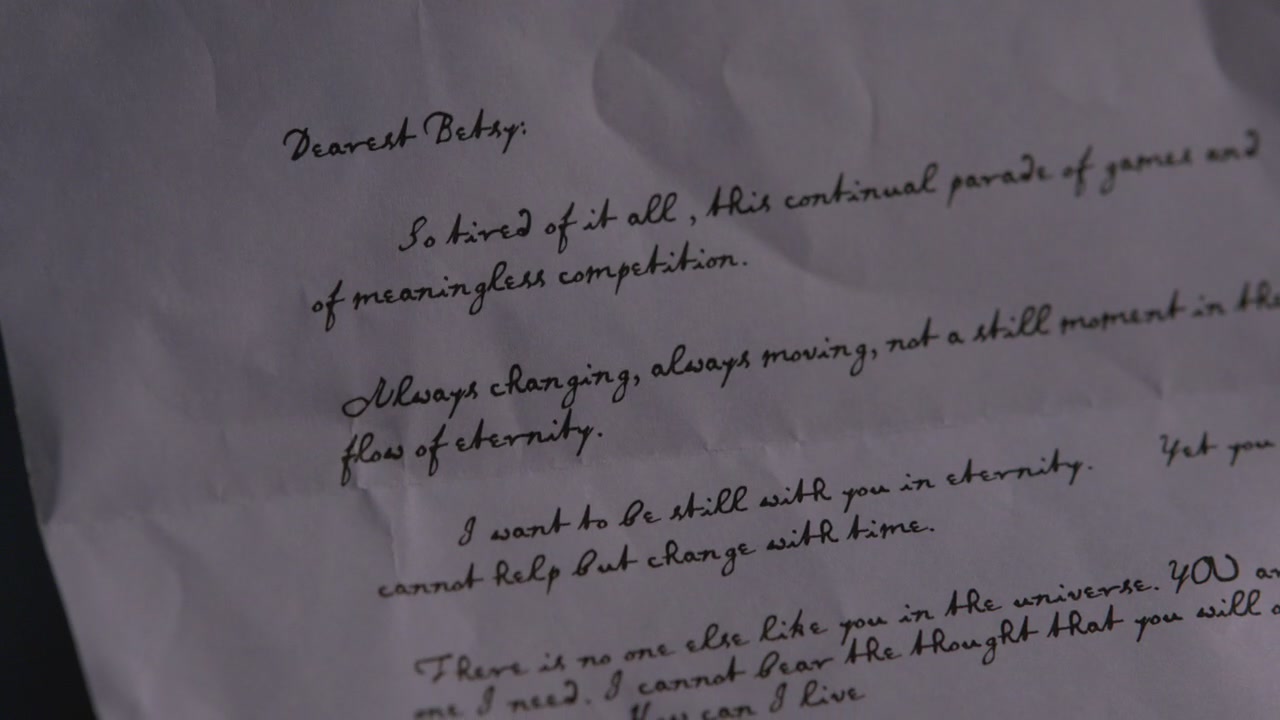 Dearest Betsy:
So tired of it all, this continual parade of games and
of meaningless competition.
Always changing, always moving, not a still moment in the
flow of eternity.
I want to be still with you in eternity. Yet you
cannot help but change with time.
There is no one else like you in the universe. YOU
one I need. I cannot bear the thought that you will
can I live